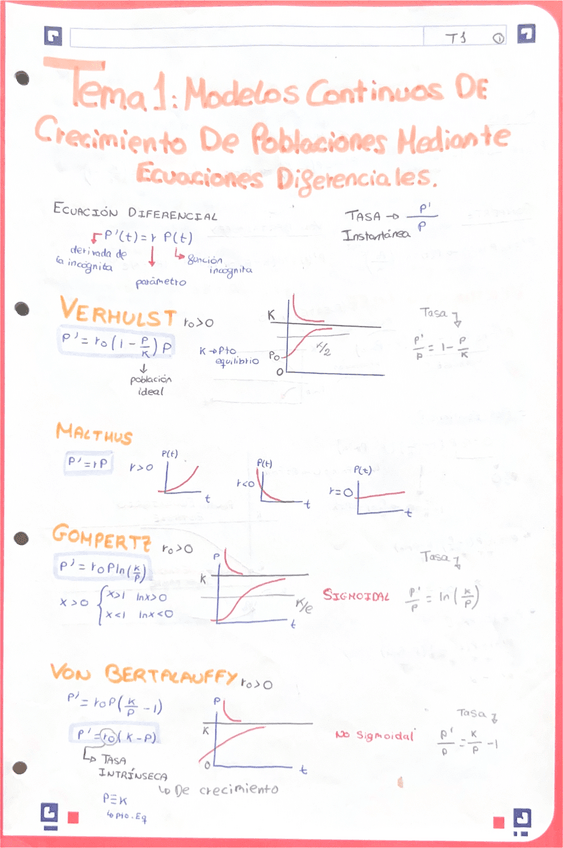 T1 ①
Tema 1: Modelos Continuos De
Crecimiento De Poblaciones Mediante
Ecuaciones Diferenciales.
ECUACIÓN DIFERENCIAL
P'(t) = r P(t)
derivada de
la incógnita
función
incógnita
parámetro
TASA → P'/P
Instantánea
VERHULST r₀>0
P' = r₀(1 - P/K)P
↓
población
ideal
K → Pto
equilibrio
K
P₀
0
K/2
Tasa
P'/P = 1 - P/K
MALTHUS
P' = rP
r>0
P(t)
t
r<0
P(t)
t
r=0
P(t)
t
GOMPERTZ r₀>0
P' = r₀Pln(K/P)
x>0 { x>1 lnx>0
x<1 lnx<0
P
K
K/e
t
SIGMOIDAL
Tasa
P'/P = ln(K/P)
VON BERTALAUFFY r₀>0
P' = r₀P(K/P - 1)
P' = r₀(K-P)
↳ TASA
INTRÍNSECA
↳ De crecimiento
P≡K
↳ Pto. Eq
P
K
0
t
No Sigmoidal
Tasa
P'/P = K/P - 1